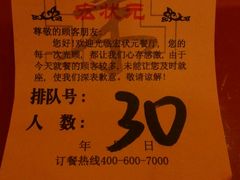 宏状元
尊敬的顾客朋友:
您好!欢迎光临宏状元餐厅,您的
每一次光顾,都让我们心存感激,由于
今天就餐的顾客较多,未能让您及时就
座,使我们深表歉意。敬请谅解!
排队号:
人数: 30
年 日
订餐热线400-600-7000